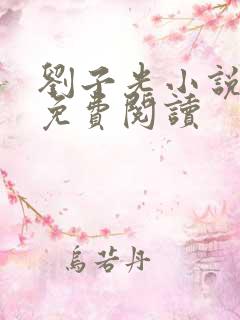 劉子光小說
免費閱讀
烏若丹